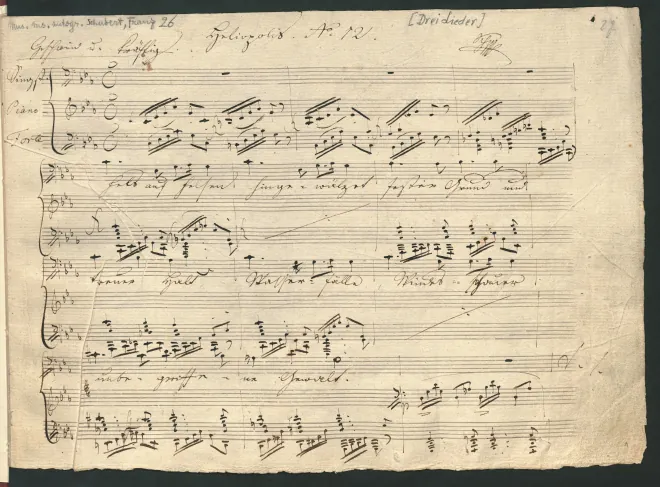 Mus. ms. autogr. Schubert, Franz 26
[Drei Lieder]
27
Geschwind u. kräftig. Heliopolis No 12.
Singst.
Piano
Forte
Fels auf Felsen hingewälzet fester Grund und
treuer Halt Wasserfälle Windesschauer
unbegriffene Gewalt.